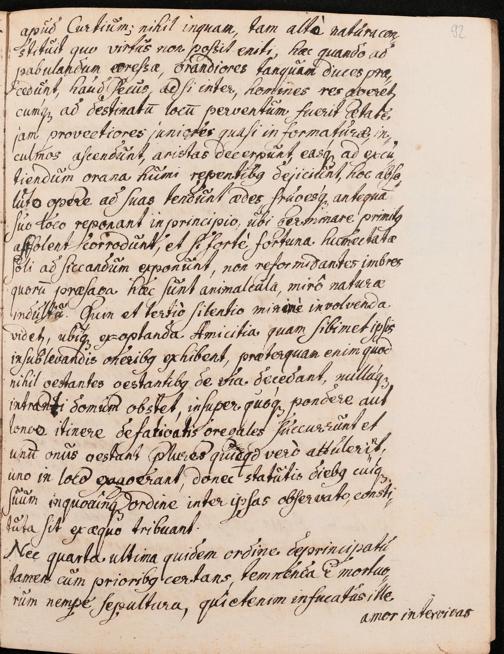 92
apud Curtium; nihil inquam, tam altè natura con-
stituit quo virtus non possit eniti, hæc quando ad
pabulandum egressæ, grandiores tanquam duces præ-
cedunt, haud secus, ac si inter, homines res ageret
cumq; ad destinatũ locũ perventum fuerit ætate,
jam provectiores juniores quasi in formaturæ, in
culmos ascendunt, aristas decerpunt, easq; ad excu-
tiendum grana humi repentibq dejiciunt, hoc abso-
luto opere ad suas tendunt ædes frugesq; antequã
suo loco reponant in principio, ubi germinare primitq
assolent corrodunt, et si forte fortuna humectatæ
soli ad siccandum exponunt, non reformidantes imbres
quorũ præsaga hæc sunt animalcula, mirò naturæ
indultũ. Quin et tertiò silentio minimè involvenda
videt, ubiq; exoptanda Amicitia quam sibimet ipsis
in sublevandis oneribq exhibent, præterquam enim quod
nihil gestantes gestantibq de via decedant, nullaq;
intranti domum obstet, insuper quoq; pondere aut
longo itinere defatigatis gregales succurrunt et
unũ onus gestant plures quicqd verò attulerit,
uno in loco coacervant, donec statutis diebq cuiq;
suum in quoduing ordine inter ipsas observato, consti-
tuta sit ex æquo tribuant.
Nec quarta ultima quidem ordine, de principatu
tamen cum prioribq certans, temnenda ẽ mortuo-
rum nempè sepultura, qui etenim infucatus ille
amor inter vivas